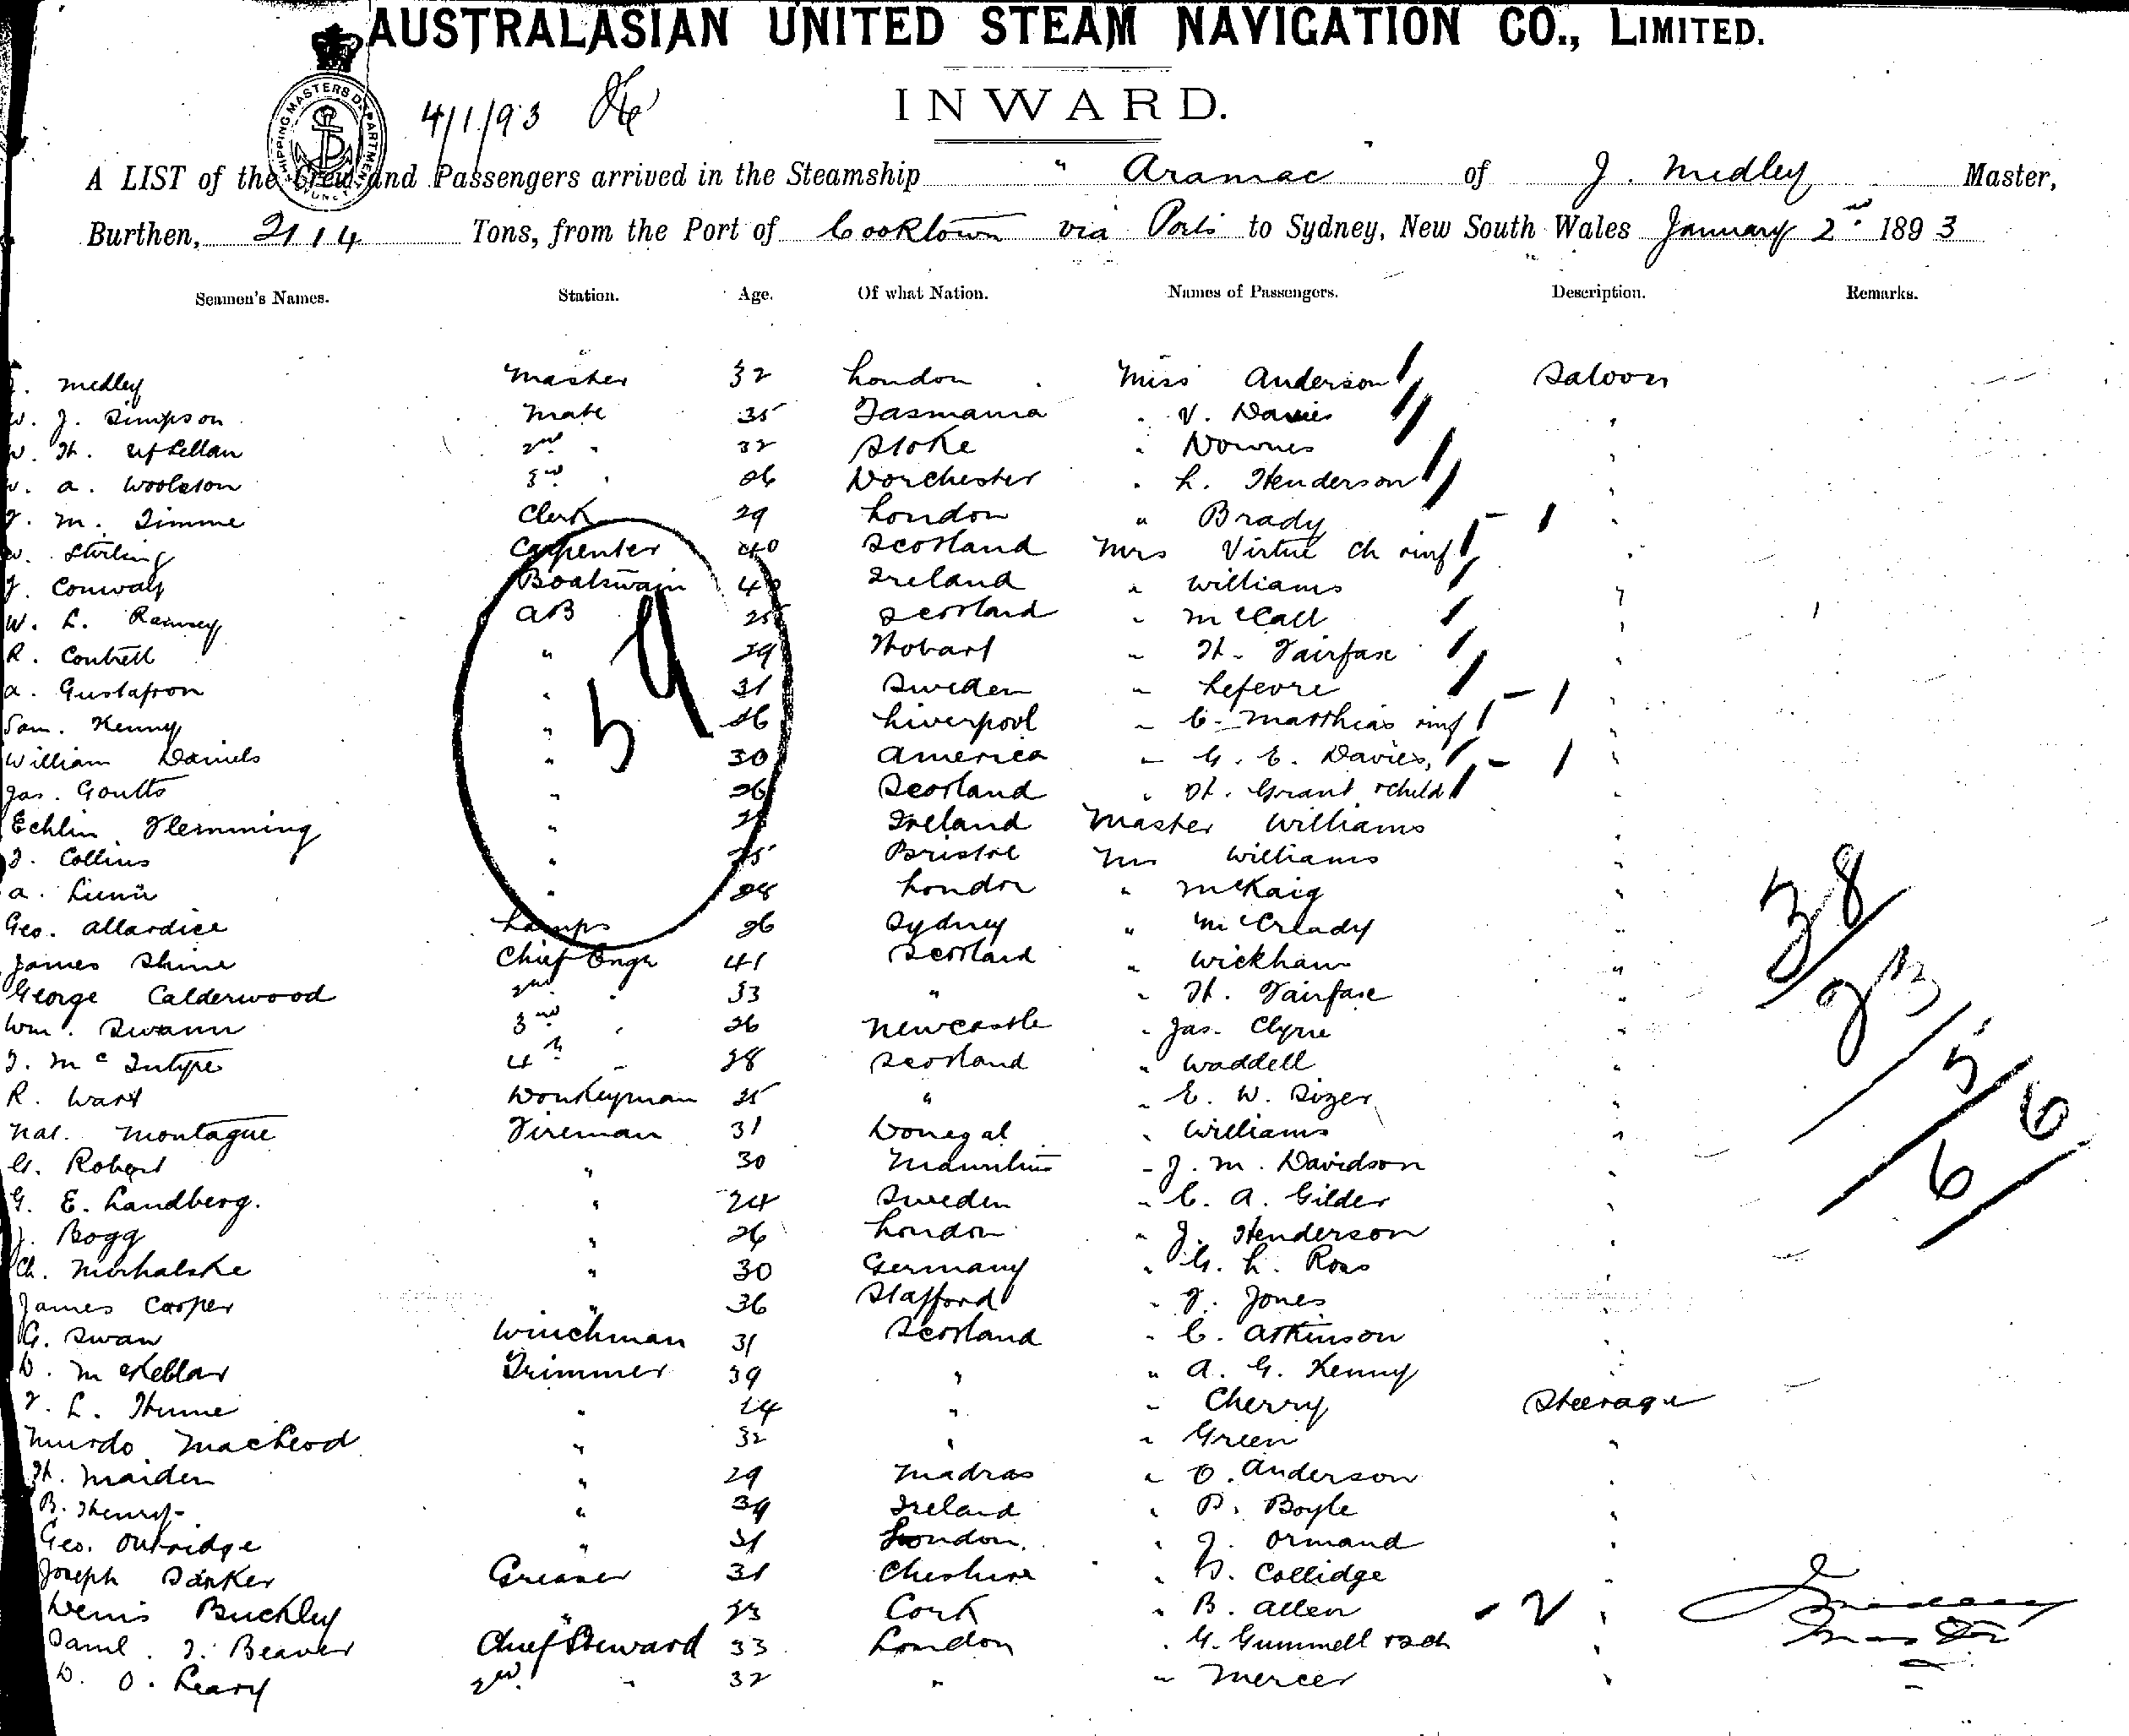 AUSTRALASIAN UNITED STEAM NAVIGATION CO., LIMITED.
4/1/93
INWARD.
A LIST of the Crew and Passengers arrived in the Steamship "Aramac of J. Medley Master,
Burthen, 2114 Tons, from the Port of Cooktown via Ports to Sydney, New South Wales January 2nd 1893
Seamen's Names. Station. Age. Of what Nation. Names of Passengers. Description. Remarks.
Medley Master 32 London Miss Anderson Saloon
W. J. Simpson Mate 35 Tasmania " V. Davies "
W. H. 2nd " 32 Stoke " Downes "
a. Woolston 3rd " 26 Dorchester " L. Henderson "
M. Timme Clerk 29 London " Brady "
W. Stirling Carpenter 40 Scotland Mrs Virtue ch inf "
J. Conway Boatswain 40 Ireland " Williams "
W. L. Ramsey AB 25 Scotland " McCall "
R. Contrell " 29 Hobart " H. Fairfax "
A. Gustafson " 31 Sweden " Lefevre "
Sam. Kenny " 26 Liverpool " C. Matthias inf "
William Daniels " 30 America " G. E. Davies, "
Jas. Goutts " 26 Scotland " H. Grant & child "
Echlin Flemming " Ireland Master Williams "
J. Collins " 25 Bristol Mr Williams "
A. " 28 London " McKaig "
Geo. Allardice Lamps 26 Sydney " McCready "
James Shine Chief Engr 41 Scotland " Wickham "
George Calderwood 2nd " 33 " " H. Fairfax "
Wm. Swann 3rd " 26 Newcastle " Jas. Clyne "
J. McIntyre 4th " 28 Scotland " Waddell "
R. Wart Donkeyman 25 " " E. W. Sizer "
Nat. Montague Fireman 31 Donegal " Williams "
G. Robert " 30 Mauritius " J. M. Davidson "
G. E. Landberg. " 24 Sweden " C. A. Gilder "
J. Bogg " 26 London " J. Henderson "
Ch. Mirhalske " 30 Germany " G. L. Ross "
James Cooper " 36 Stafford " J. Jones "
G. Swan Winchman 31 Scotland " C. Atkinson "
D. McKellar Trimmer 39 " " A. G. Kenny "
L. Hume " 24 " " Cherry Steerage
Murdo MacLeod " 32 " " Green "
H. Maiden " 29 Madras " O. Anderson "
B. Henry " 39 Ireland " P. Boyle "
Geo. Outridge " 31 London. " J. Ormand "
Joseph Parker Greaser 31 Cheshire " D. Collidge "
Denis Buckley " 23 Cork " B. Allen "
Saml. J. Beaver Chief Steward 33 London " G. Gummell & 2 ch "
D. O. Leary 2nd " 32 " " Mercer "
59
38
23
5
66
J Medley
Master